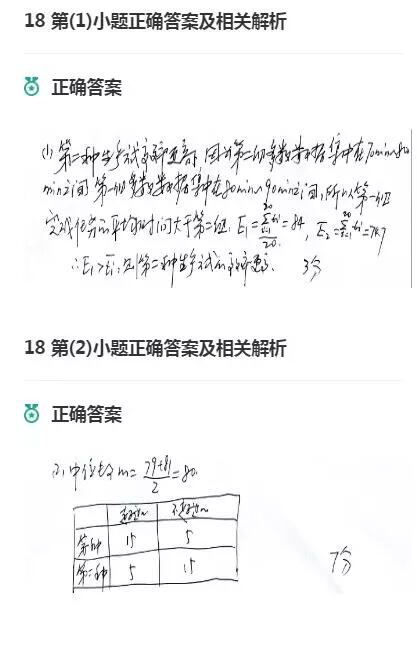 18 第(1)小题正确答案及相关解析
正确答案
(1) 第二种生产方式效率更高. 因为第二组多数数据集中在70min~80
min之间 第一组多数数据集中在80min~90min之间,所以第一组
完成任务的平均时间大于第二组. E₁=20∑i=1 ti/20=84, E₂=20∑i=1 ti=74.7
∴E₁>E₂, 则第二种生产方式的效率更高. 3分
18 第(2)小题正确答案及相关解析
正确答案
(2) 中位数 m=79+81/2=80.
超过m 不超过m
第一种 15 5
第二种 5 15
7分